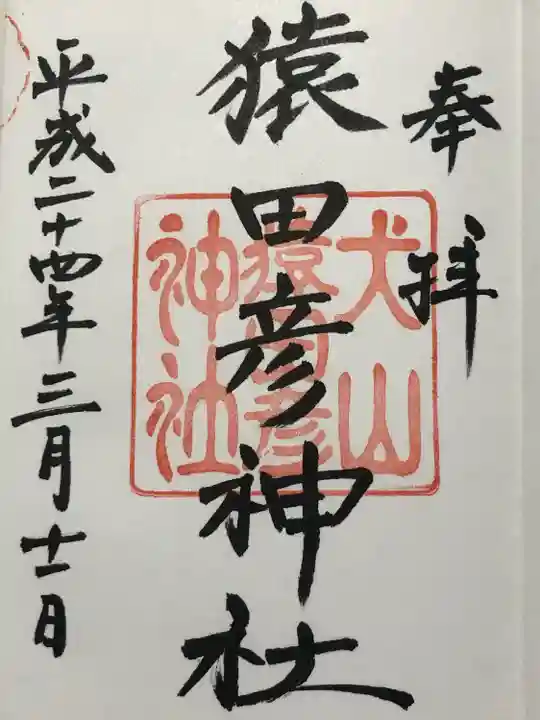 奉拝
犬山
猿田彦
神社
猿田彦神社
平成二十四年三月十一日